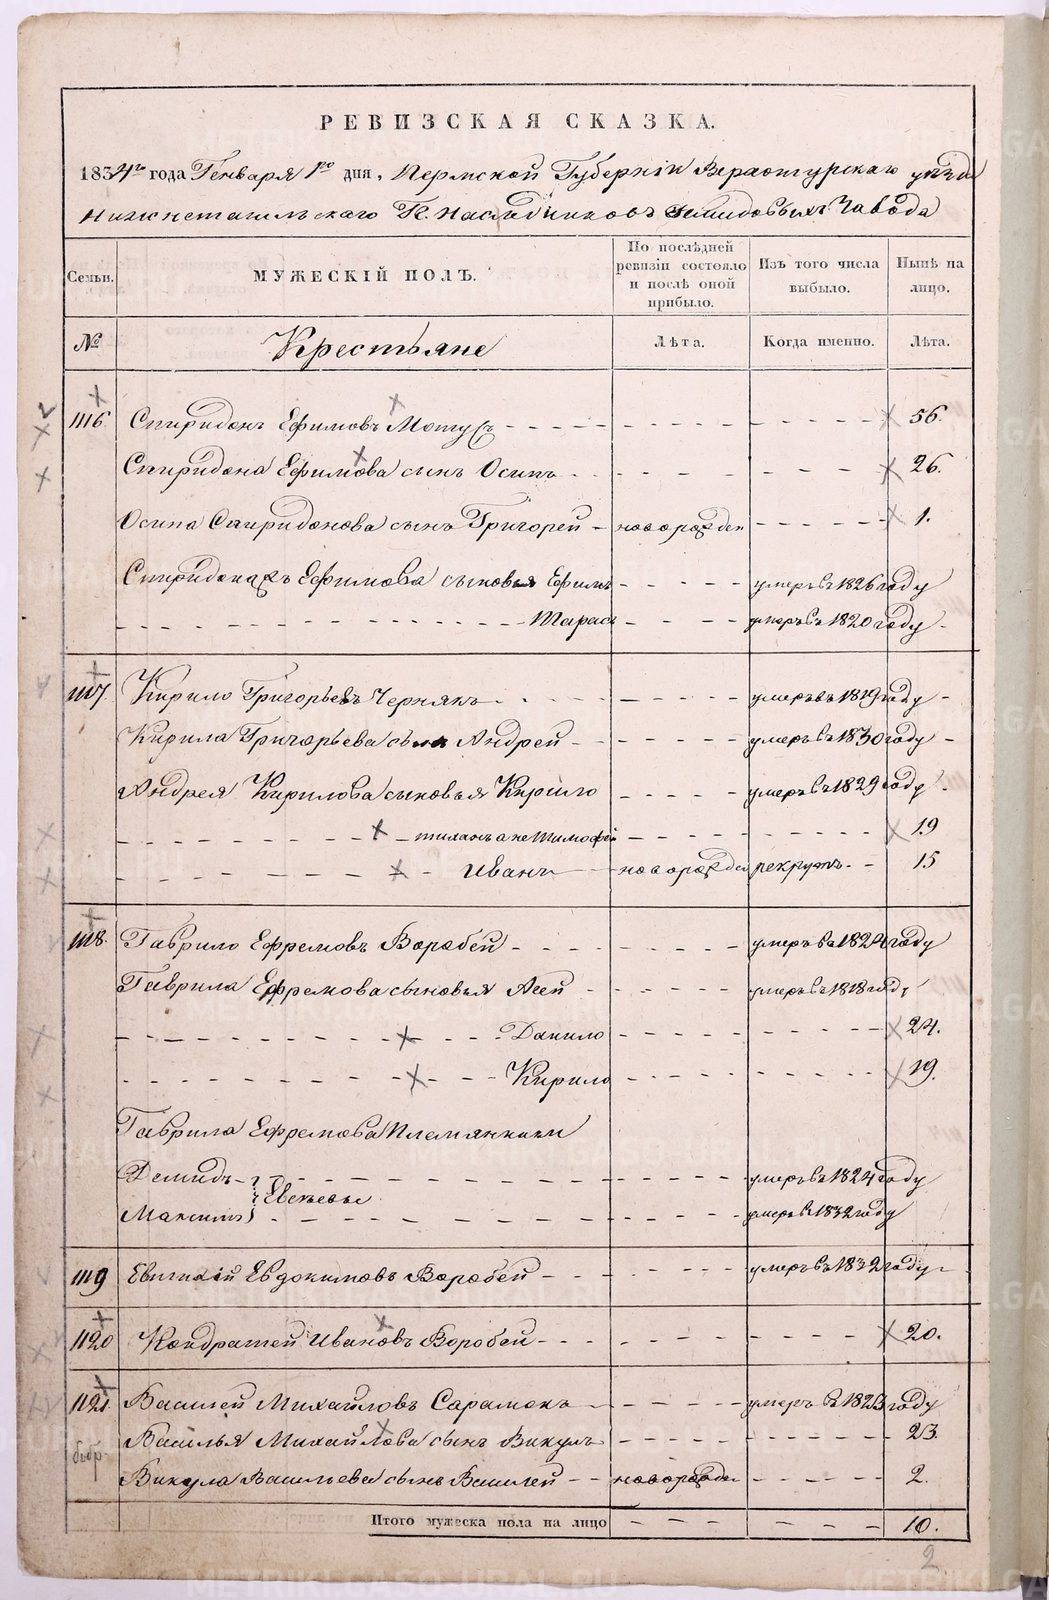 РЕВИЗСКАЯ СКАЗКА.
1834го года Генваря 1го дня, Пермской Губерніи Верхотурскаго уѣзда
Нижнетагильскаго Гг. Наслѣдниковъ Демидовыхъ Завода
Семьи. МУЖЕСКІЙ ПОЛЪ. По послѣдней ревизіи состояло и послѣ оной прибыло. Изъ того числа выбыло. Нынѣ на лицо.
№ Крестьяне Лѣта. Когда именно. Лѣта.
1116 Спиридонъ Ефимовъ 56.
Спиридона Ефимова сынъ Осипъ 26.
Осипа Спиридонова сынъ Григорей новорожден 1.
Ефимова сыновья Ефимъ умеръ въ 1826 году
Тарасъ умеръ въ 1820 году
1117 Кирило Григорьевъ Чернякъ умеръ въ 1819 году
Кирила Григорьева сынъ Андрей умеръ въ 1830 году
Андрея Кирилова сыновья Кирило умеръ въ 1829 году
а не Тимофей 19
Иванъ новорожден рекрутъ 15
1118. Гаврило Ефремовъ Воробей умеръ въ 1824 году
Гаврила Ефремова сыновья умеръ въ 1818 году
Данило 24.
Кирило 19.
Гаврила Ефремова Племянники
Демидъ умеръ въ 1824 году
Максимъ умеръ въ 1832 году
1119 Евдокимовъ Воробей умеръ въ 1832 году
1120 Кондратей Ивановъ Воробей 20.
1121 Василей Михайловъ умеръ въ году
Василья Михайлова сынъ Викулъ 23.
Викула Васильева сынъ Василей новорожден 2.
Итого мужеска пола на лицо 10.
2
METRIKI.GASO-URAL.RU